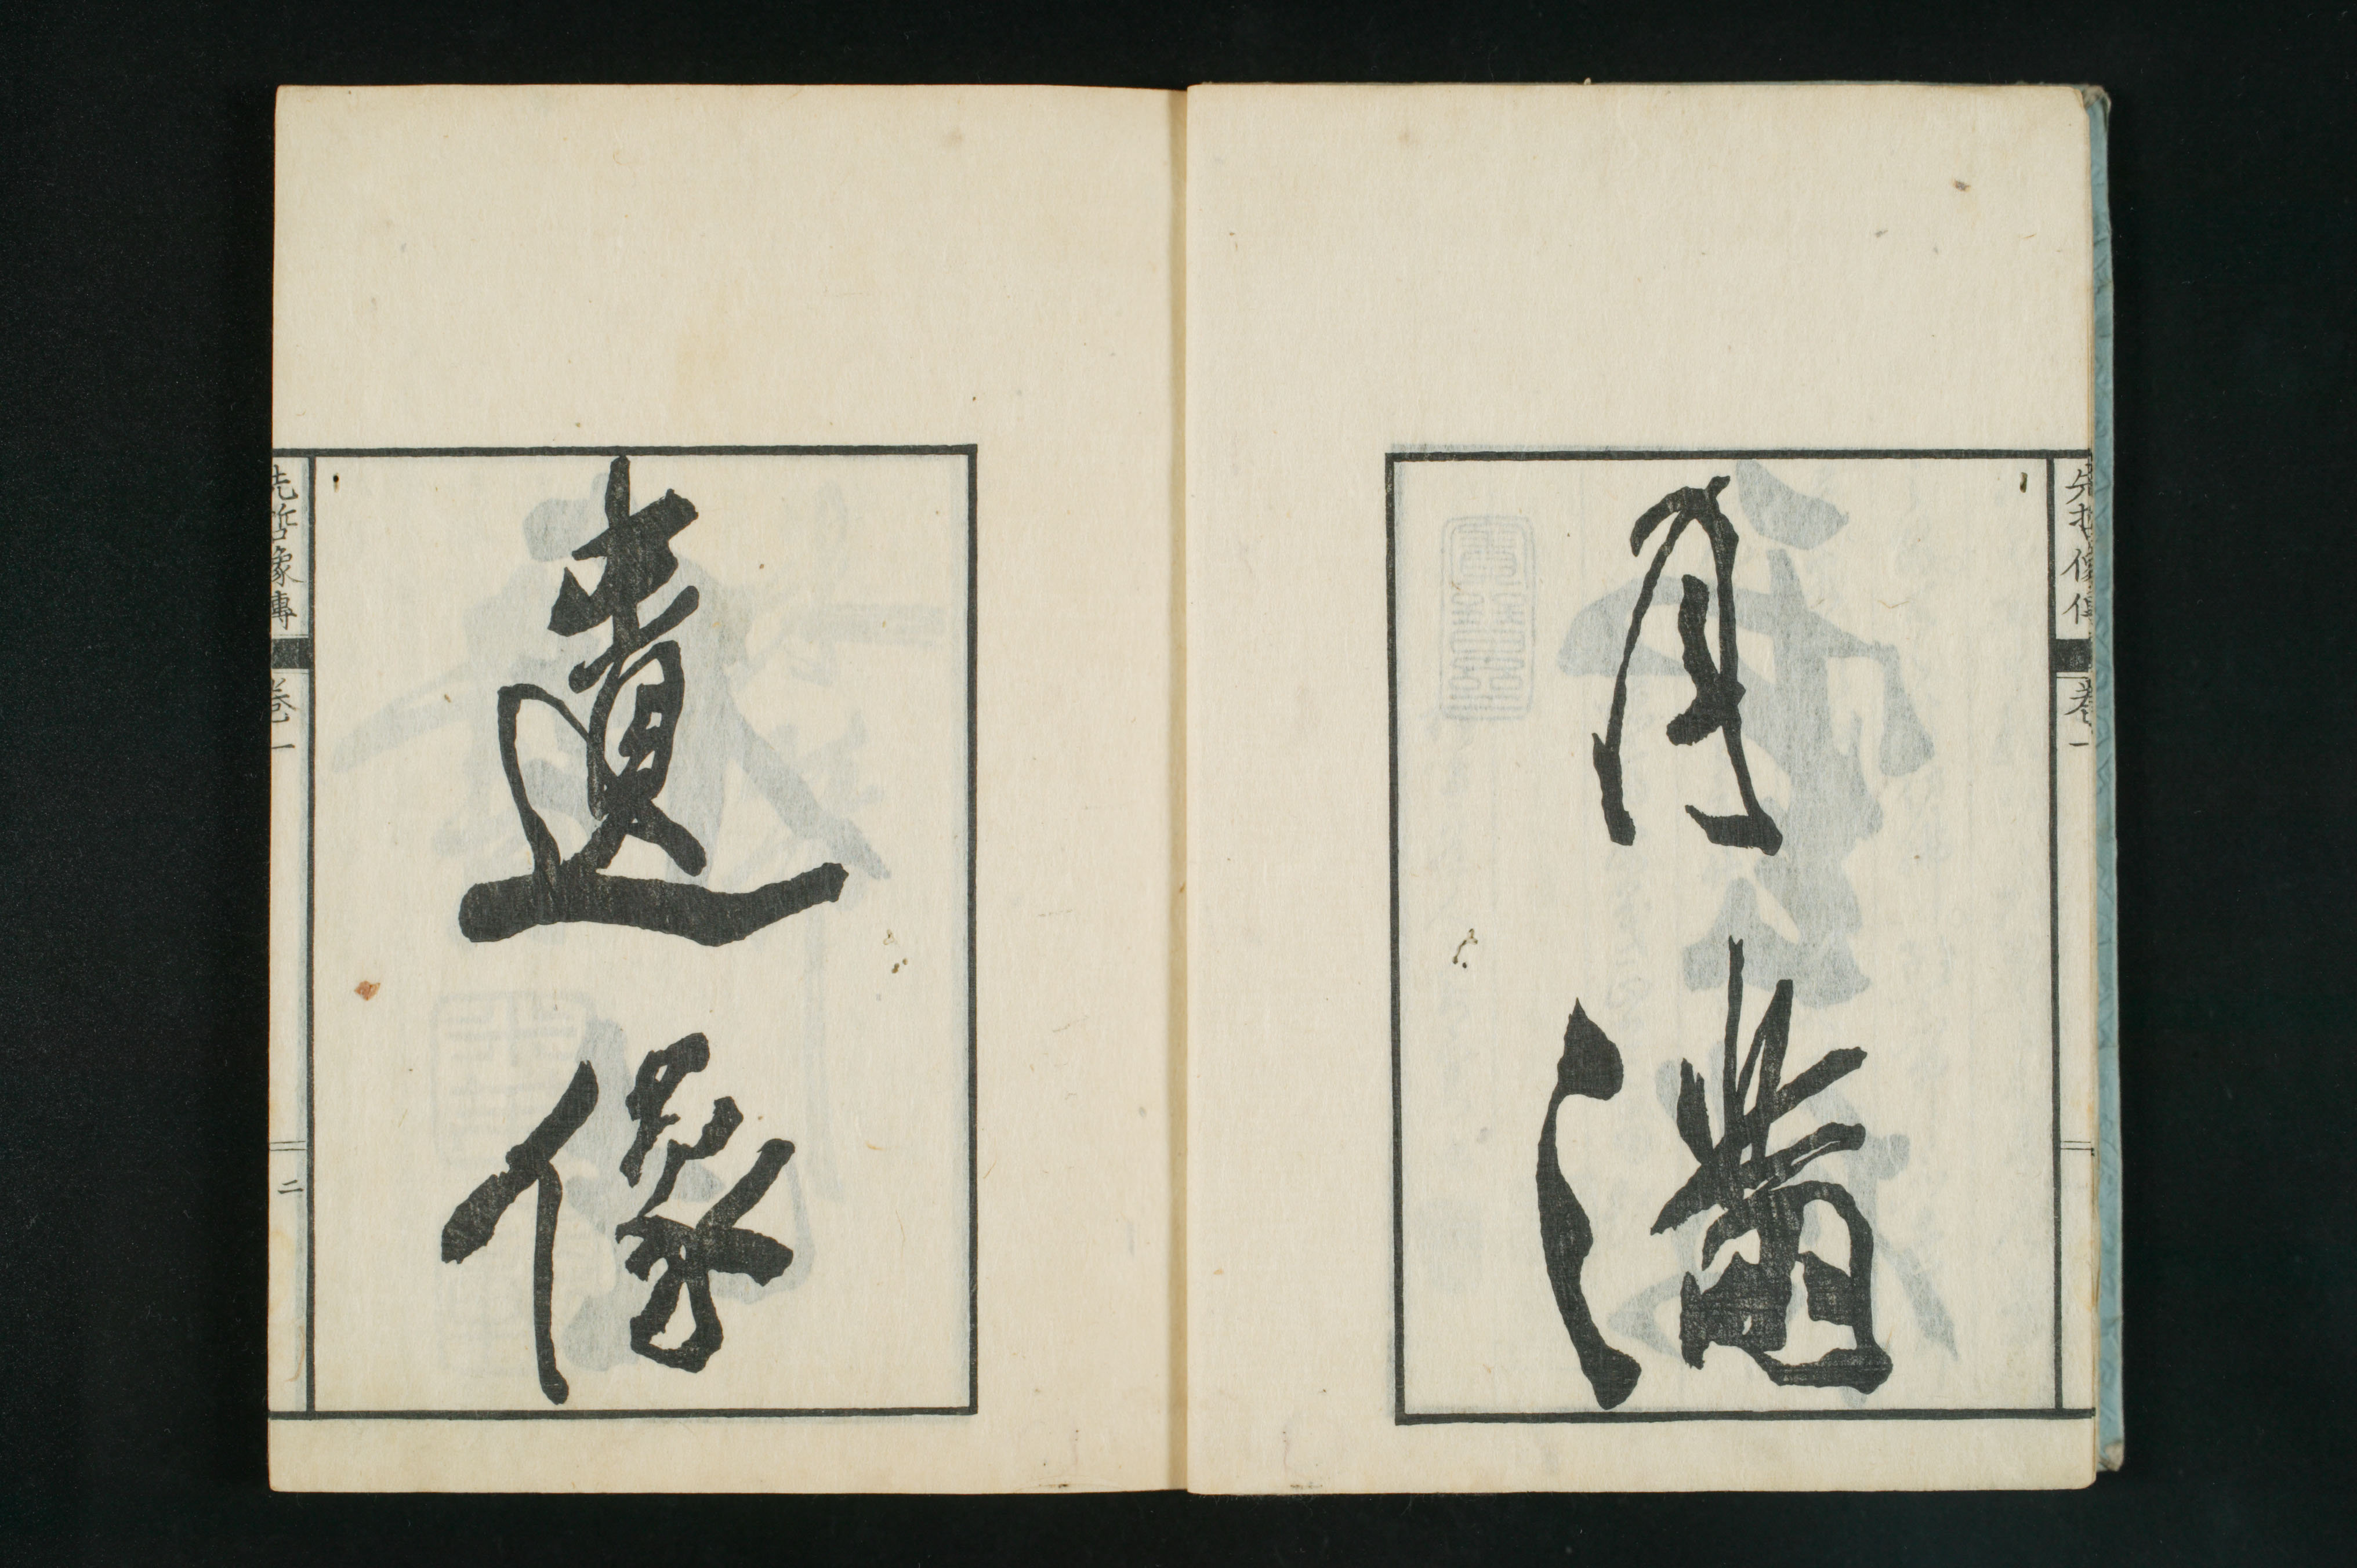 先哲像傳　卷一
月
滿
遺
像
先哲像傳　卷一　二